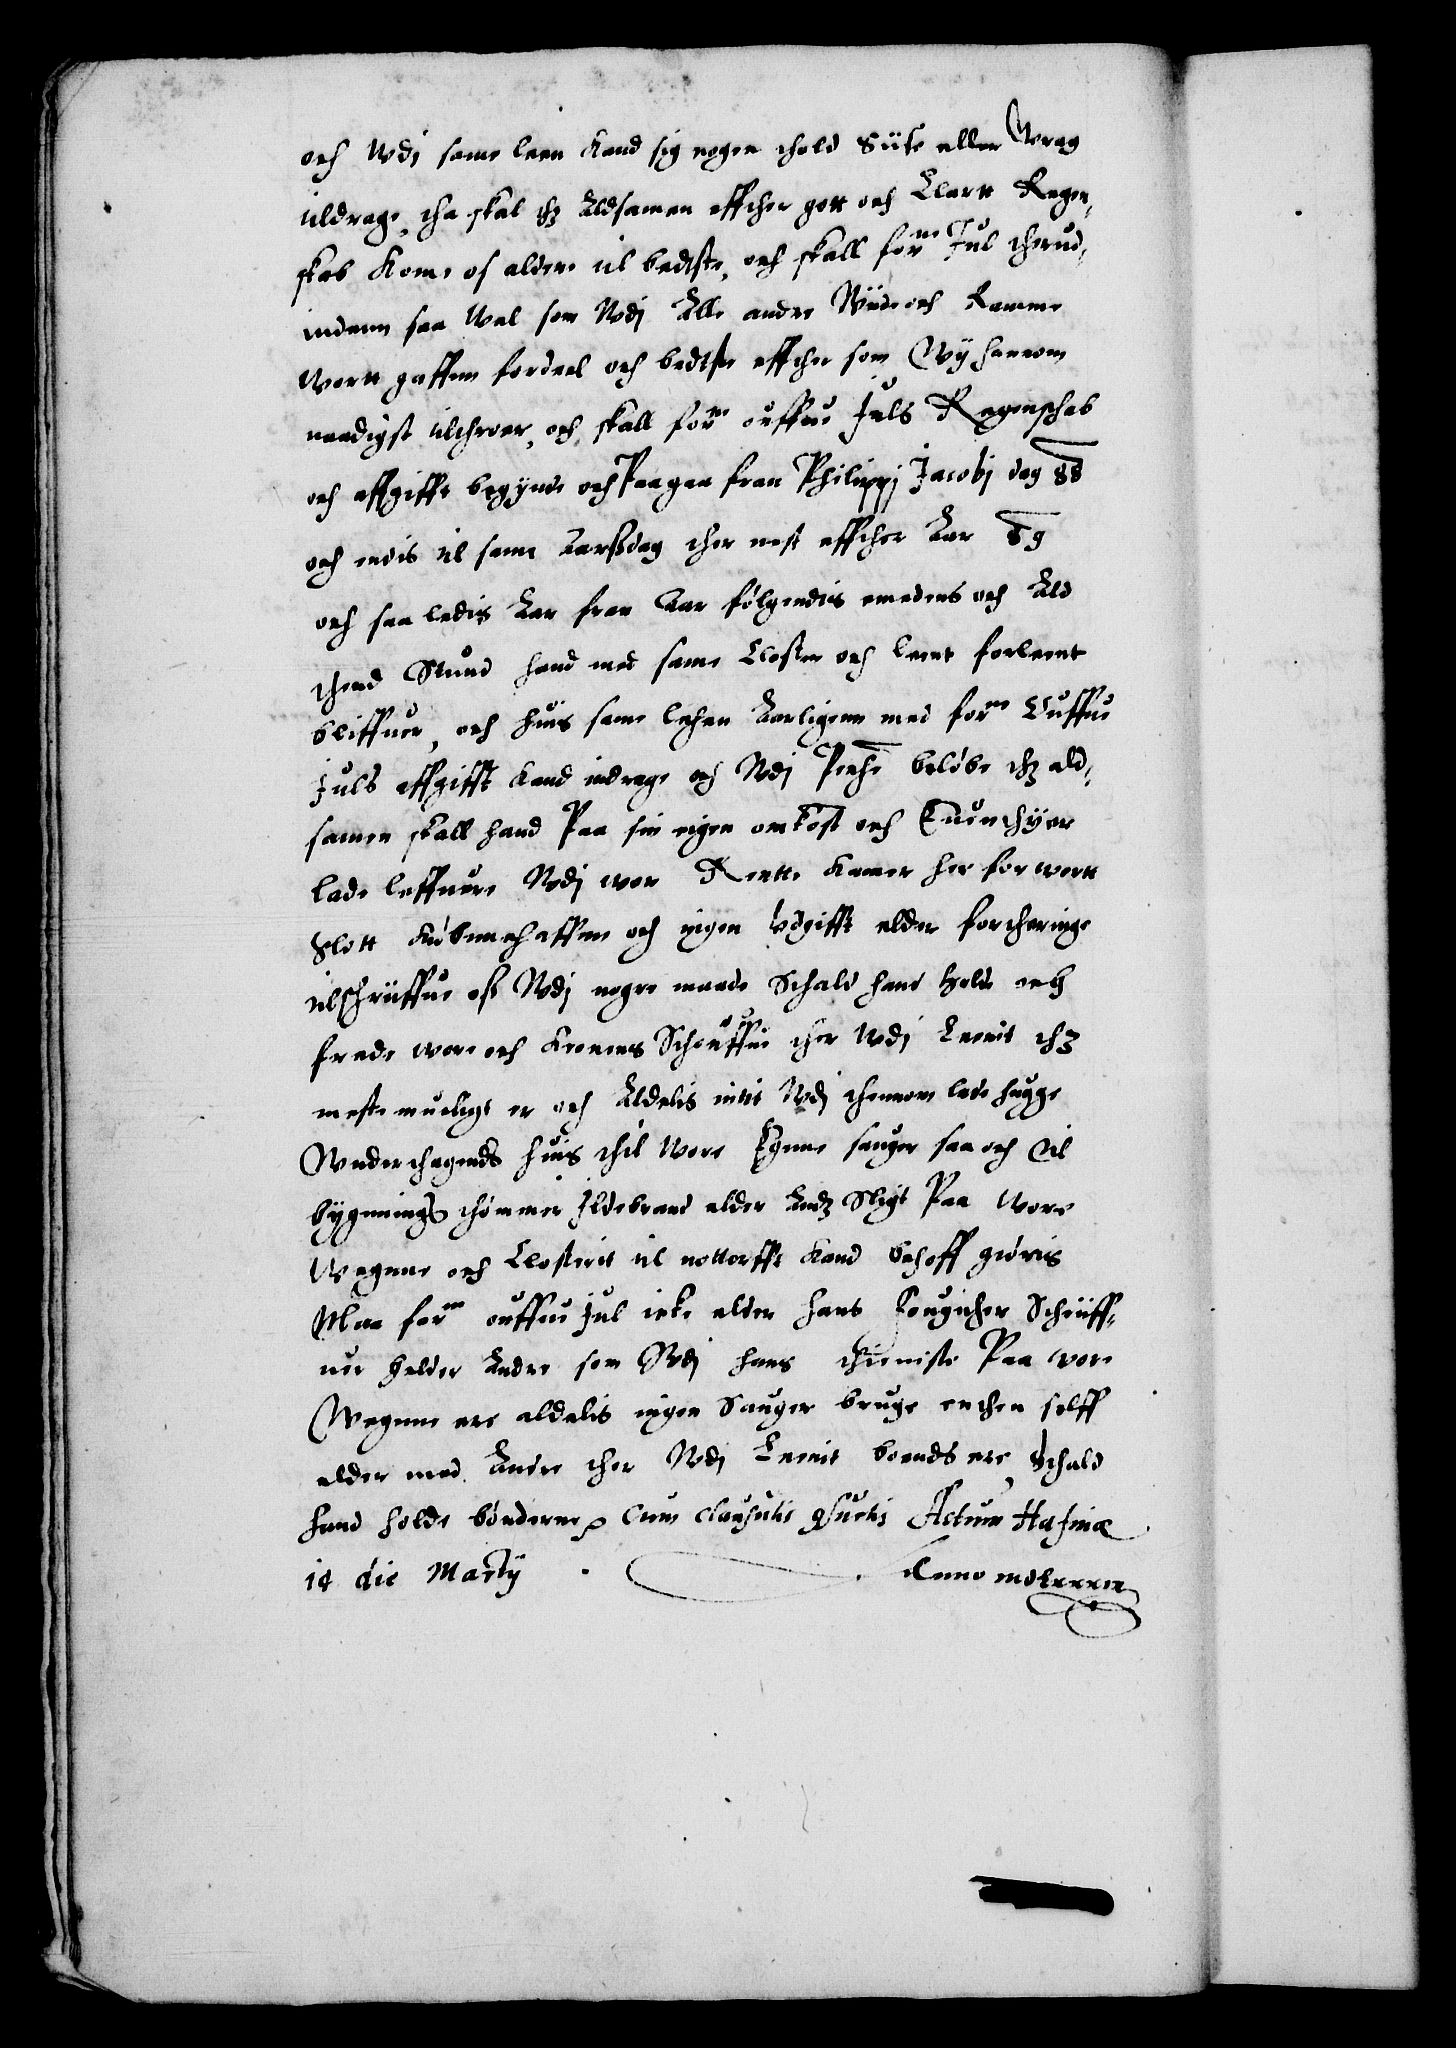 och Wdj same leen Kand sig nogen thold Siise eller Wrag
tildrage, tha skal thz Altsamen effther gott och Klartt Regen,
skab Kome os alderne til bedtste, och skall forne Jul therud,
inden saa Wel som Wdj Alle andre Wiide och Ramme
Wortt gaffnn fordeel och bedtste effther som Wy hannom
naadigst tilthroer, och skall forne ouffue Juls Regenschab
och affgifft begynde och Paagaa fran Philippj Jacobj dag 88
och endis til same Aarsdag ther nest effther Aar 89
och saa ledis Aar fran Aar følgendis emedens och Ald
thend Stund hand met same Closter och leent forleent
bliffuer, och huis same lehen Aarligenn med forne Ouffue
Juls affgifft Kand indrage och Wdj Penhe beløbe thz ald,
samen skall hand Paa sin eigen omkost och Euenthyer
lade leffuere Wdj wor Rentte Kamer her for wortt
Slott Kiøbmehaffnn och ingen Vdgifft elder fortheringe
tilschriiffue oss Wdj nogre maade Schald hand holde och
frede wore och Kronens Schouffue ther Wdj Leenit thz
meste mueligt er och Aldelis intit Wdj thennom lade hugge
Wnderthagends huis thil Wore Egnne sauger saa och til
bygnnings thømmer Ildebrand elder Andz Sligt Paa Wore
Wegnne och Closterit til nottørfft Kand behoff giøris
Maa forne ouffue Jul icke elder hans Fougither Schriiff,
uer heller Andre som Wdj hans thieniste Paa vore
Wegnne ere aldelis ingen Sauger bruge enthen selff
elder med Andre ther Wdj Leenit boends ere, Schald
hand holde bønderne p Cum clausulis Consuetis Actum Hafniæ
14 die Martij . Anno mdlxxxix